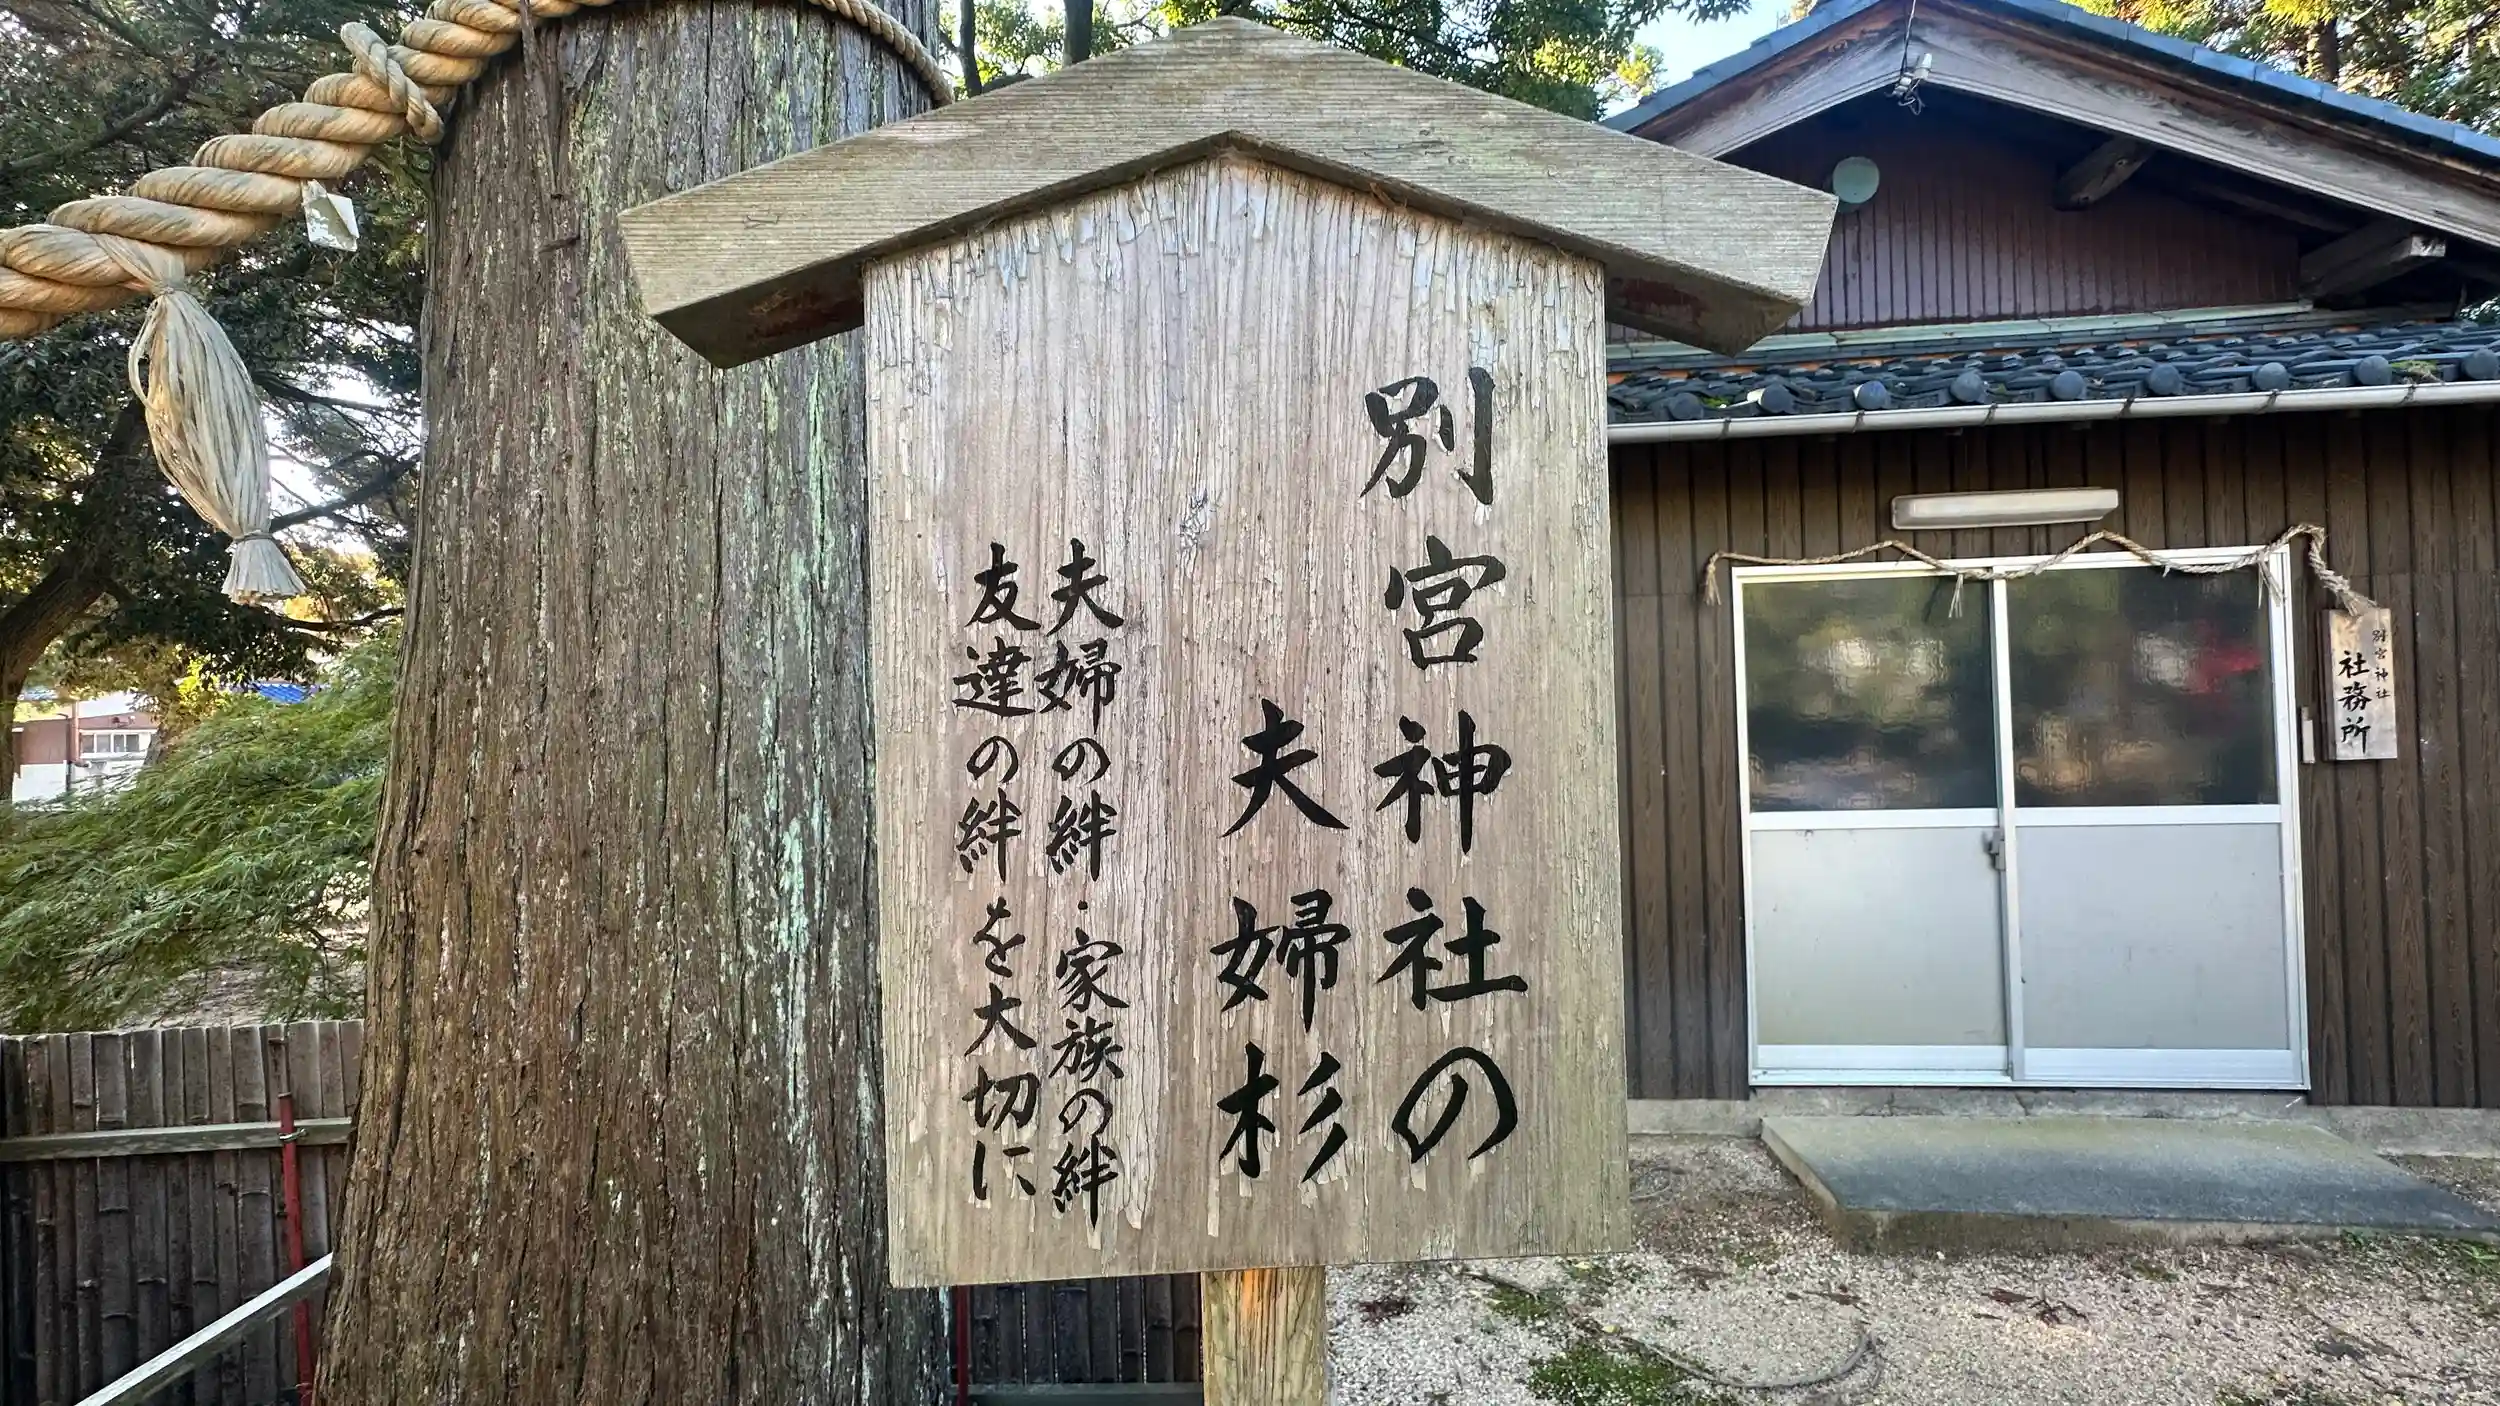 別宮神社の
夫婦杉
夫婦の絆・家族の絆
友達の絆を大切に
別宮神社
社務所